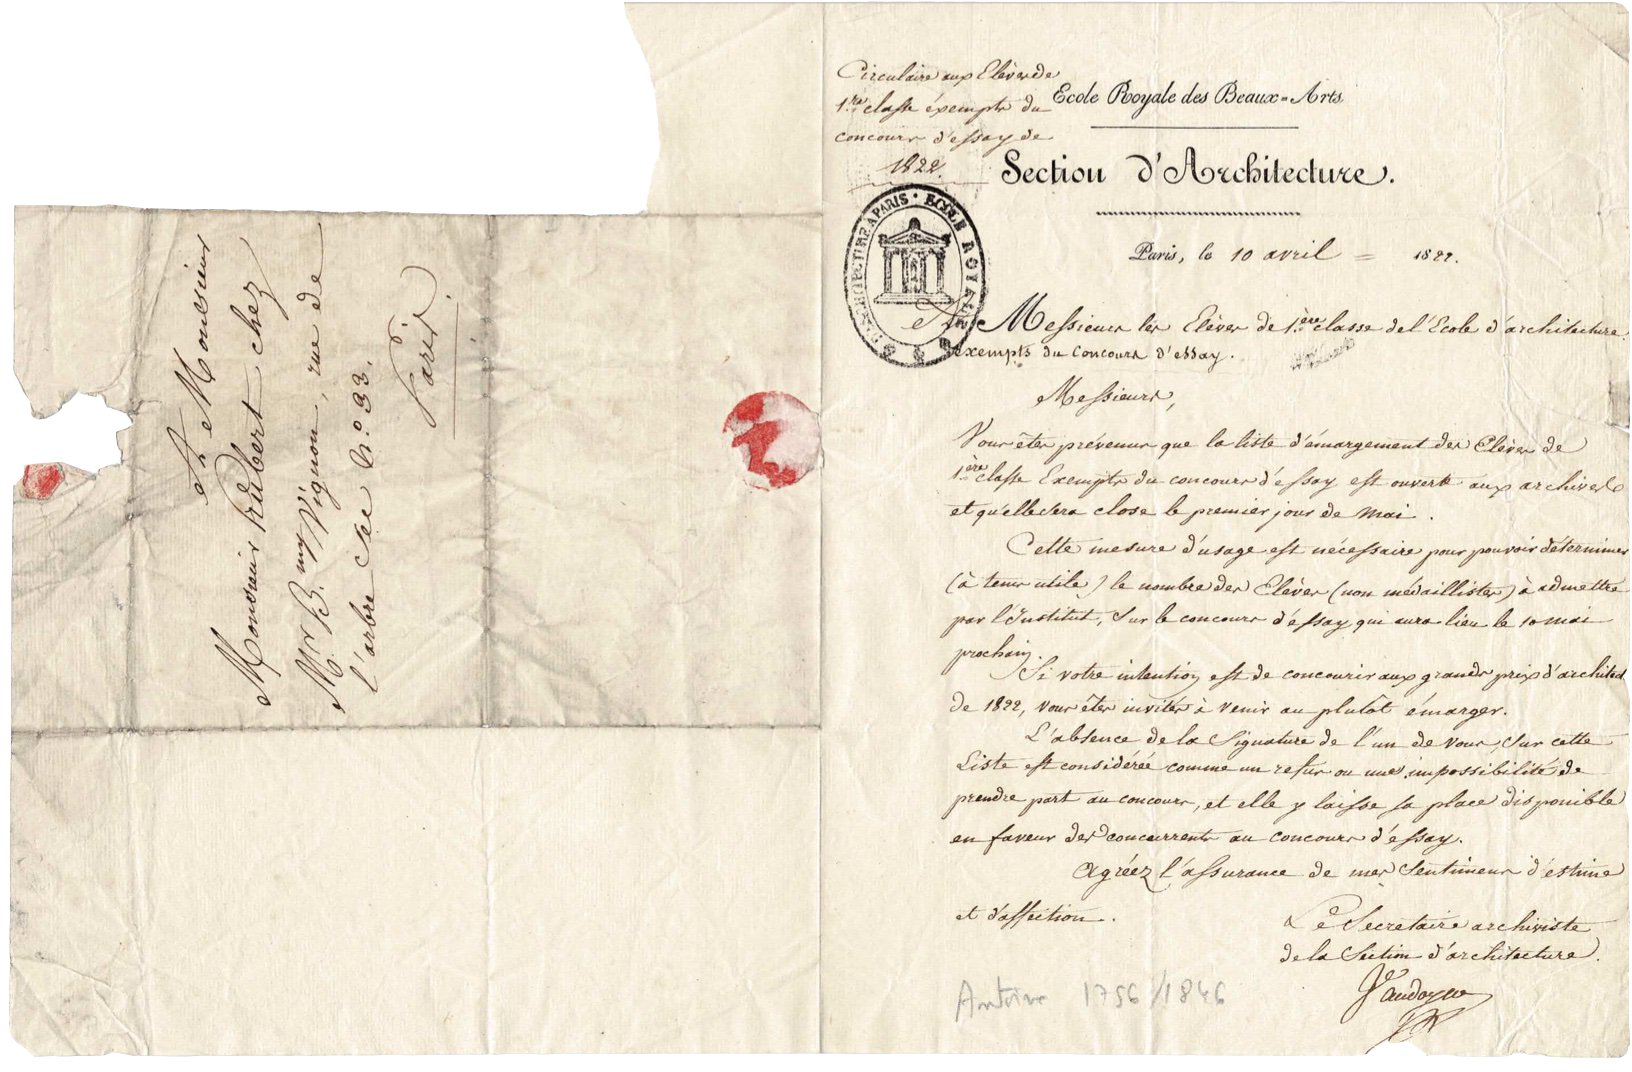 Circulaire aux Elèves de
1.re classe éxempts du
concours d'essay de
1822.
Ecole Royale des Beaux=Arts
Section d'Architecture.
D'ARCHITECTURE A PARIS · ECOLE ROYALE
Paris, le 10 avril = 1822.
A Messieurs les Elèves de 1.ère classe de l'Ecole d'architecture
exempts du Concours d'essay.
Messieurs,
Vous êtes prévenus que la liste d'émargement des Elèves de
1.ère classe Exempts du concours d'éssay est ouverte aux archives
et qu'elle sera close le premier jour de Mai.
Cette mesure d'usage est nécessaire pour pouvoir déterminer
(à tems utile) le nombre des Elèves (non médaillistes) à admettre
par l'Institut, sur le concours d'éssay qui aura lieu le 10 mai
prochain.
Si votre intention est de concourir aux grands prix d'architect
de 1822, vous êtes invités à venir au plutôt émarger.
L'absence de la signature de l'un de vous, sur cette
Liste est considérée comme un refus ou une impossibilité de
prendre part au concours, et elle y laisse sa place disponible
en faveur des concurrents au concours d'éssay.
Agréez l'assurance de mes sentimens d'éstime
et d'affection.
Le Secretaire archiviste
de la Section d'architecture.
Vaudoyer
Antoine 1756/1846
A Monsieur
Monsieur Hubert chez
Mr. B.my Vignon, rue de
l'arbre sec N.o 33.
Paris.